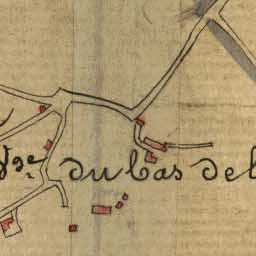 Vge du bas de l